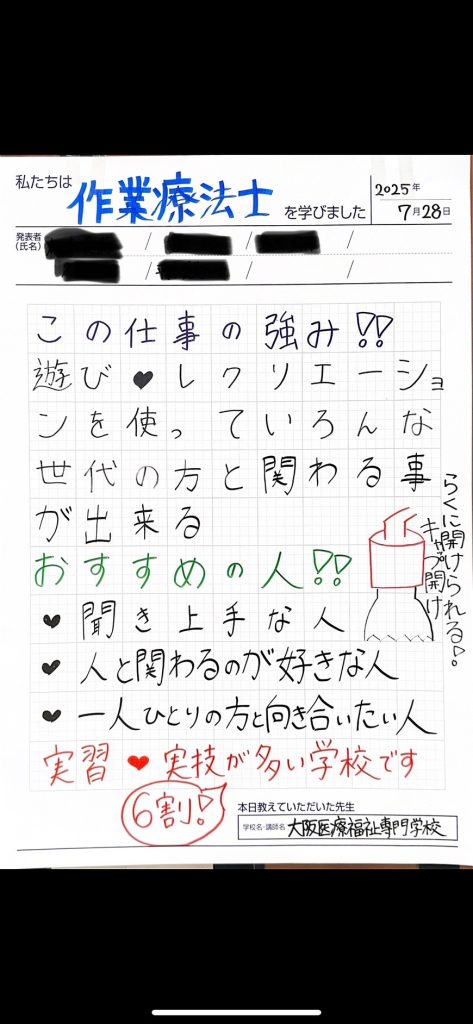 私たちは 作業療法士 を学びました
2025年
7月28日
発表者
(氏名)
この仕事の強み!!
遊び♥レクリエーショ
ンを使っていろんな
世代の方と関わる事
が出来る
おすすめの人!!
♥聞き上手な人
♥人と関わるのが好きな人
♥一人ひとりの方と向き合いたい人
らくに開けられる!
キャップ開け
実習♥実技が多い学校です
6割!
本日教えていただいた先生
学校名・講師名 大阪医療福祉専門学校